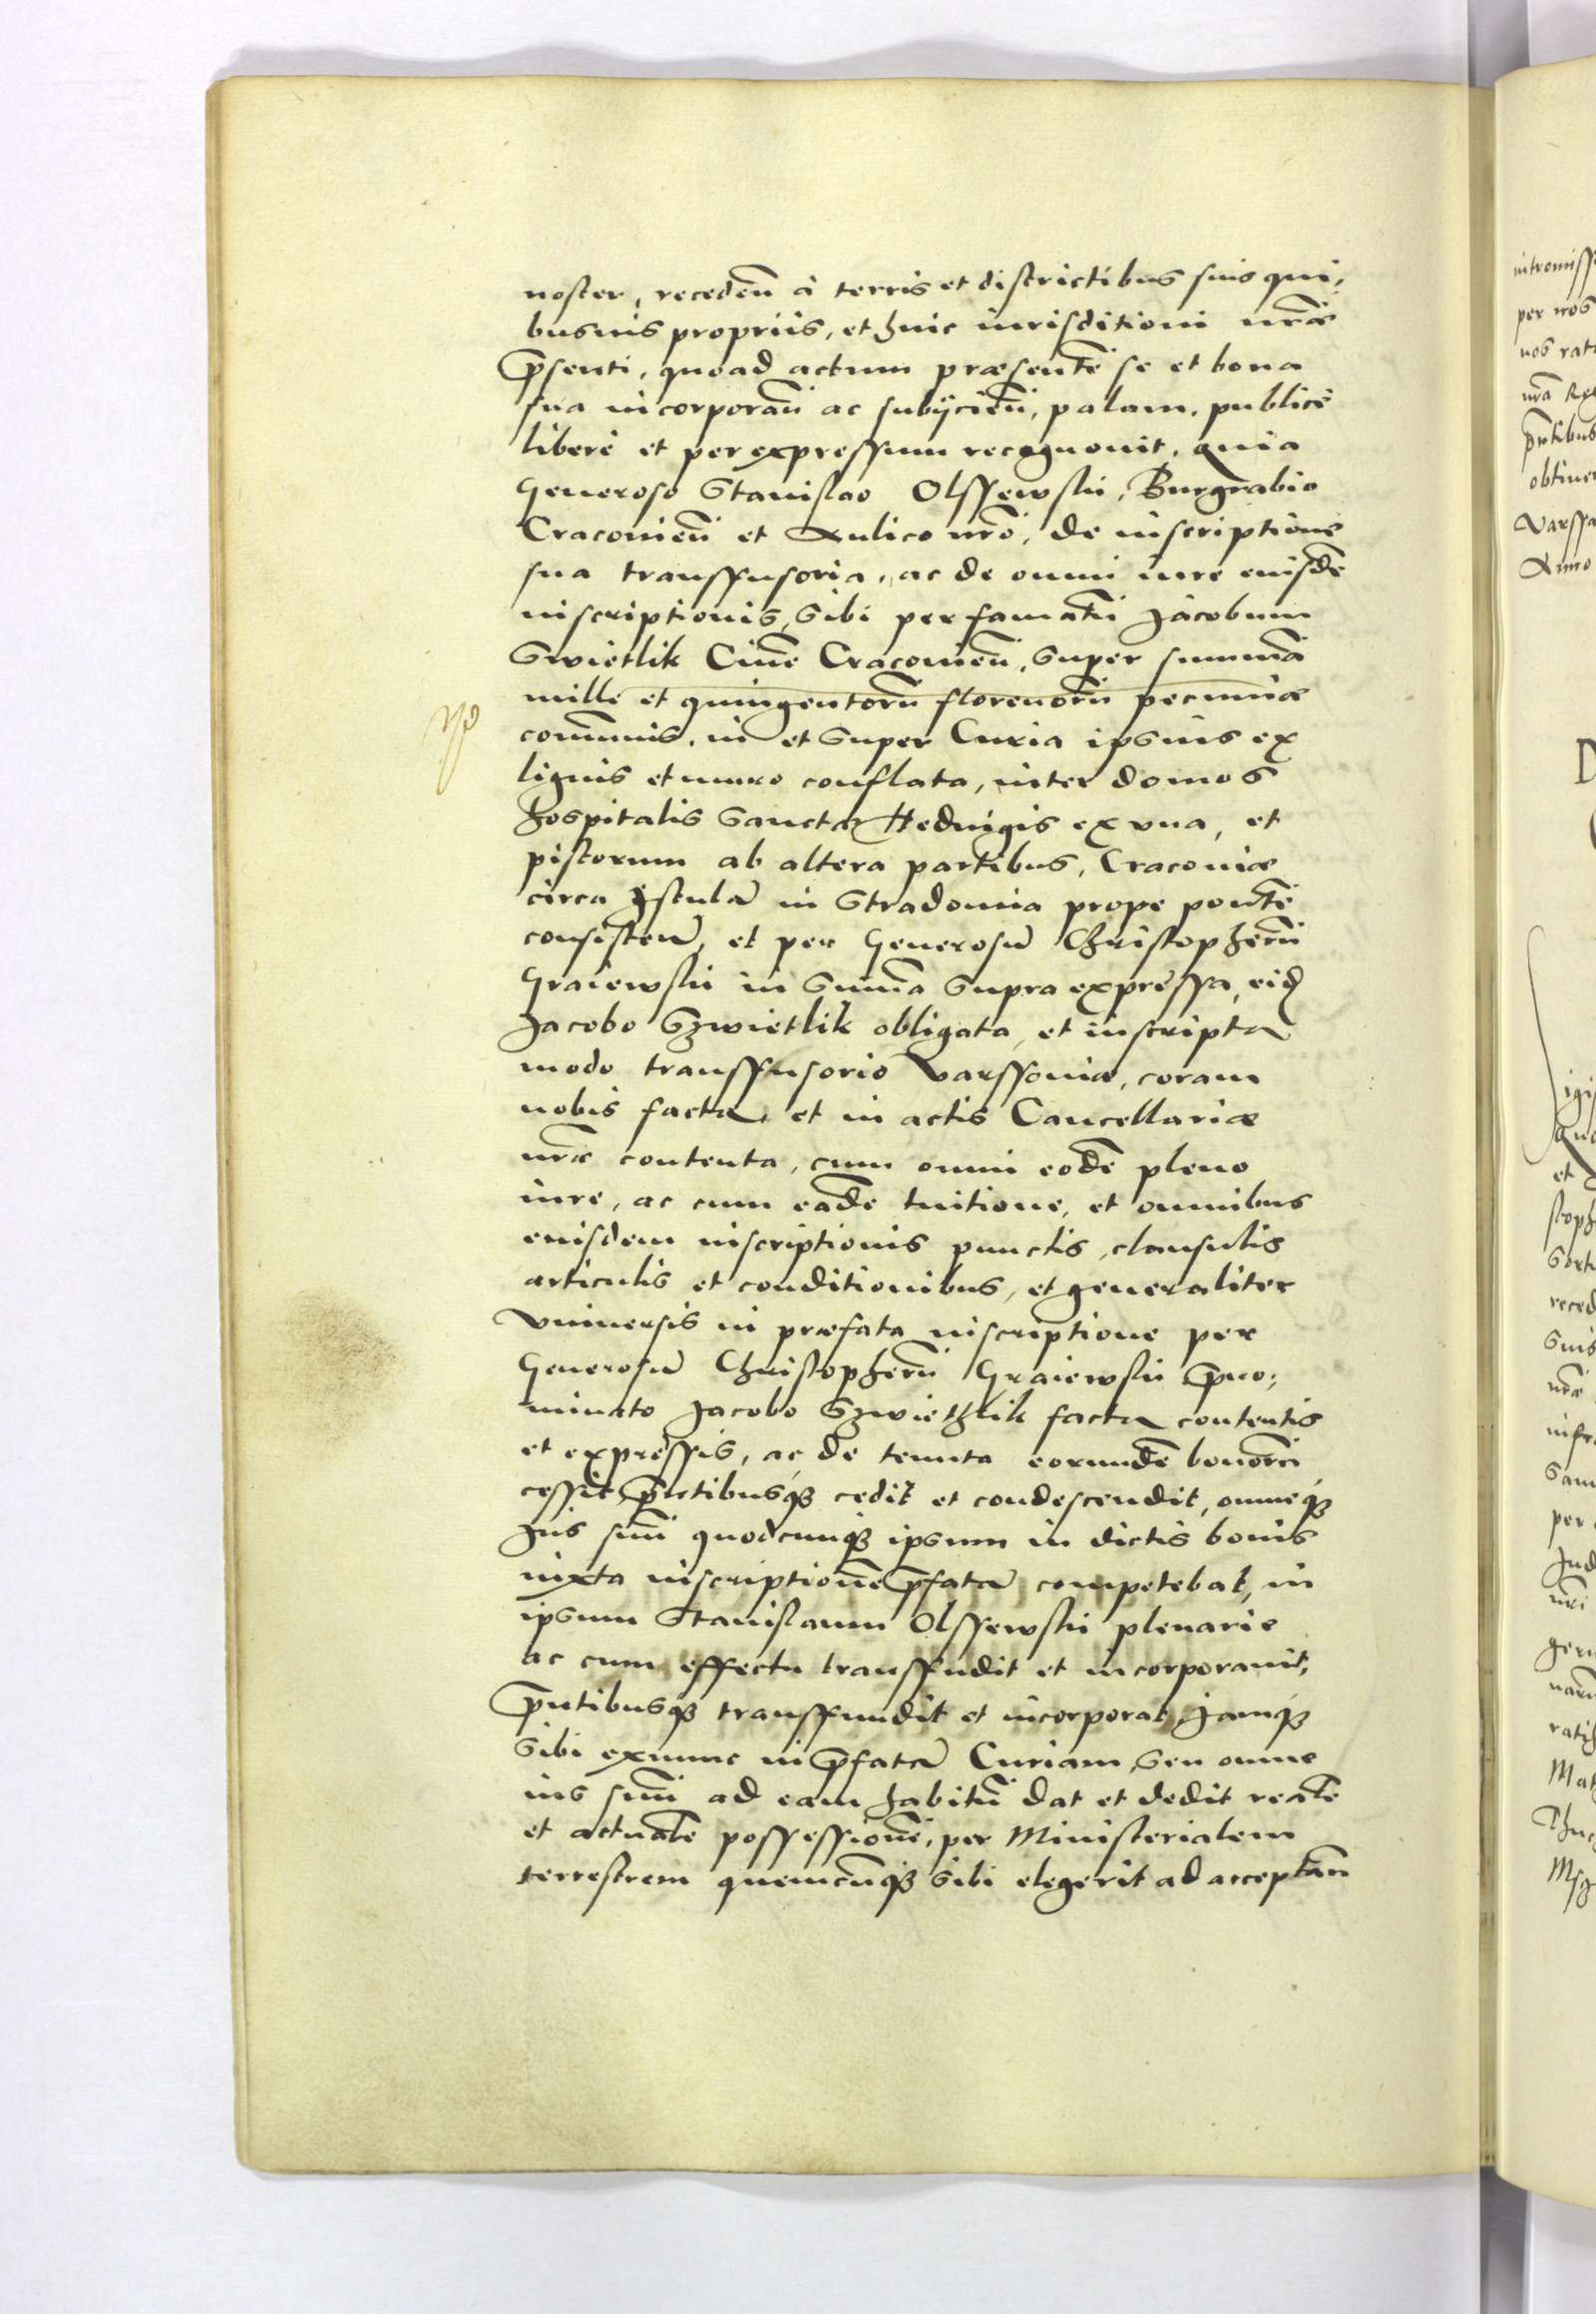 noster, recedeñ à terris et districtibus suis qui,
busuis propriis, et huic iurisditioni nr̃æ
p̃senti, quoad actum præsentẽ se et bona
sua incorporañ ac subÿcieñ, palam, publicè
liberè et per expressum recognouit, quia
Generoso Stanislao Olssewski, Burgrabio
Cracovieñ et Aulico nr̃o, de inscriptione
sua transfusoria, ac de omni iure eiusdẽ
inscriptionis, sibi per famatũ Jacobum
Swietlik Ciuẽ Cracovieñ, super summã
mille et quingentorũ florenorũ pecuniæ
com̃unis, in et super Curia ipsius ex
lignis et muro conflata, inter domos
hospitalis Sanctæ Heduigis ex vna, et
pistorum ab altera partibus, Cracoviæ
circa Istulã in Stradomia prope pontẽ
consisteñ, et per Generosũ Christopherũ
Graiewski in sum̃a supra expressa, eid
Jacobo Szwietlik obligata, et inscripta
modo transfusorio Varssoviæ, coram
nobis facta, et in actis Cancellariæ
nr̃æ contenta, cum omni eodẽ pleno
iure, ac cum eadẽ tuitione, et omnibus
eiusdem inscriptionis punctis, clausulis
articulis et conditionibus, et generaliter
vniuersis in præfata inscriptione per
Generosũ Christopherũ Graiewski p̃no,
minato Jacobo Szwiethlik facta contentis
et expressis, ac de tenuta eorundẽ bonorũ
cessit, p̃ntibusq₃ cedit et condescendit, omneq₃
Jus suũ quodcunq₃ ipsum in dictis bonis
iuxta inscriptionẽ p̃fatã competebat, in
ipsum Stanislaum Olssewski plenarie
ac cum effectu transfudit et incorporauit,
p̃ntibusq₃ transfundit et incorporat, Jamq₃
sibi exnunc in p̃fatã Curiam, seu omne
ius suũ ad eam habitũ dat et dedit realẽ
et actualẽ possessionẽ, per Ministerialem
terrestrem quemcũq₃ sibi elegerit ad acceptañ